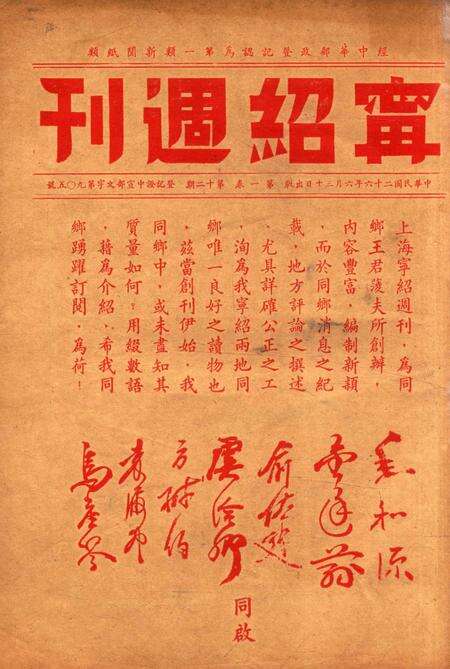 經中華郵政登記認為第一類新聞紙類
甯紹週刊
中華民國二十六年六月三十日出版 第一卷 第十二期 登記證中宣部文字第九〇五號
上海寧紹週刊,為同
鄉王君濩夫所創辦,
內容豐富,編制新穎
,而於同鄉消息之紀
載,地方評論之撰述
,尤具詳確公正之工
,洵為我寧紹兩地同
鄉唯一良好之讀物也
,茲當創刊伊始,我
同鄉中,或未盡知其
質量如何?用綴數語
,藉為介紹、希我同
鄉踴躍訂閱,為荷!
毛和源
金廷蓀
俞佐庭
虞洽卿
方椒伯
袁履登
烏崖琴
同啟